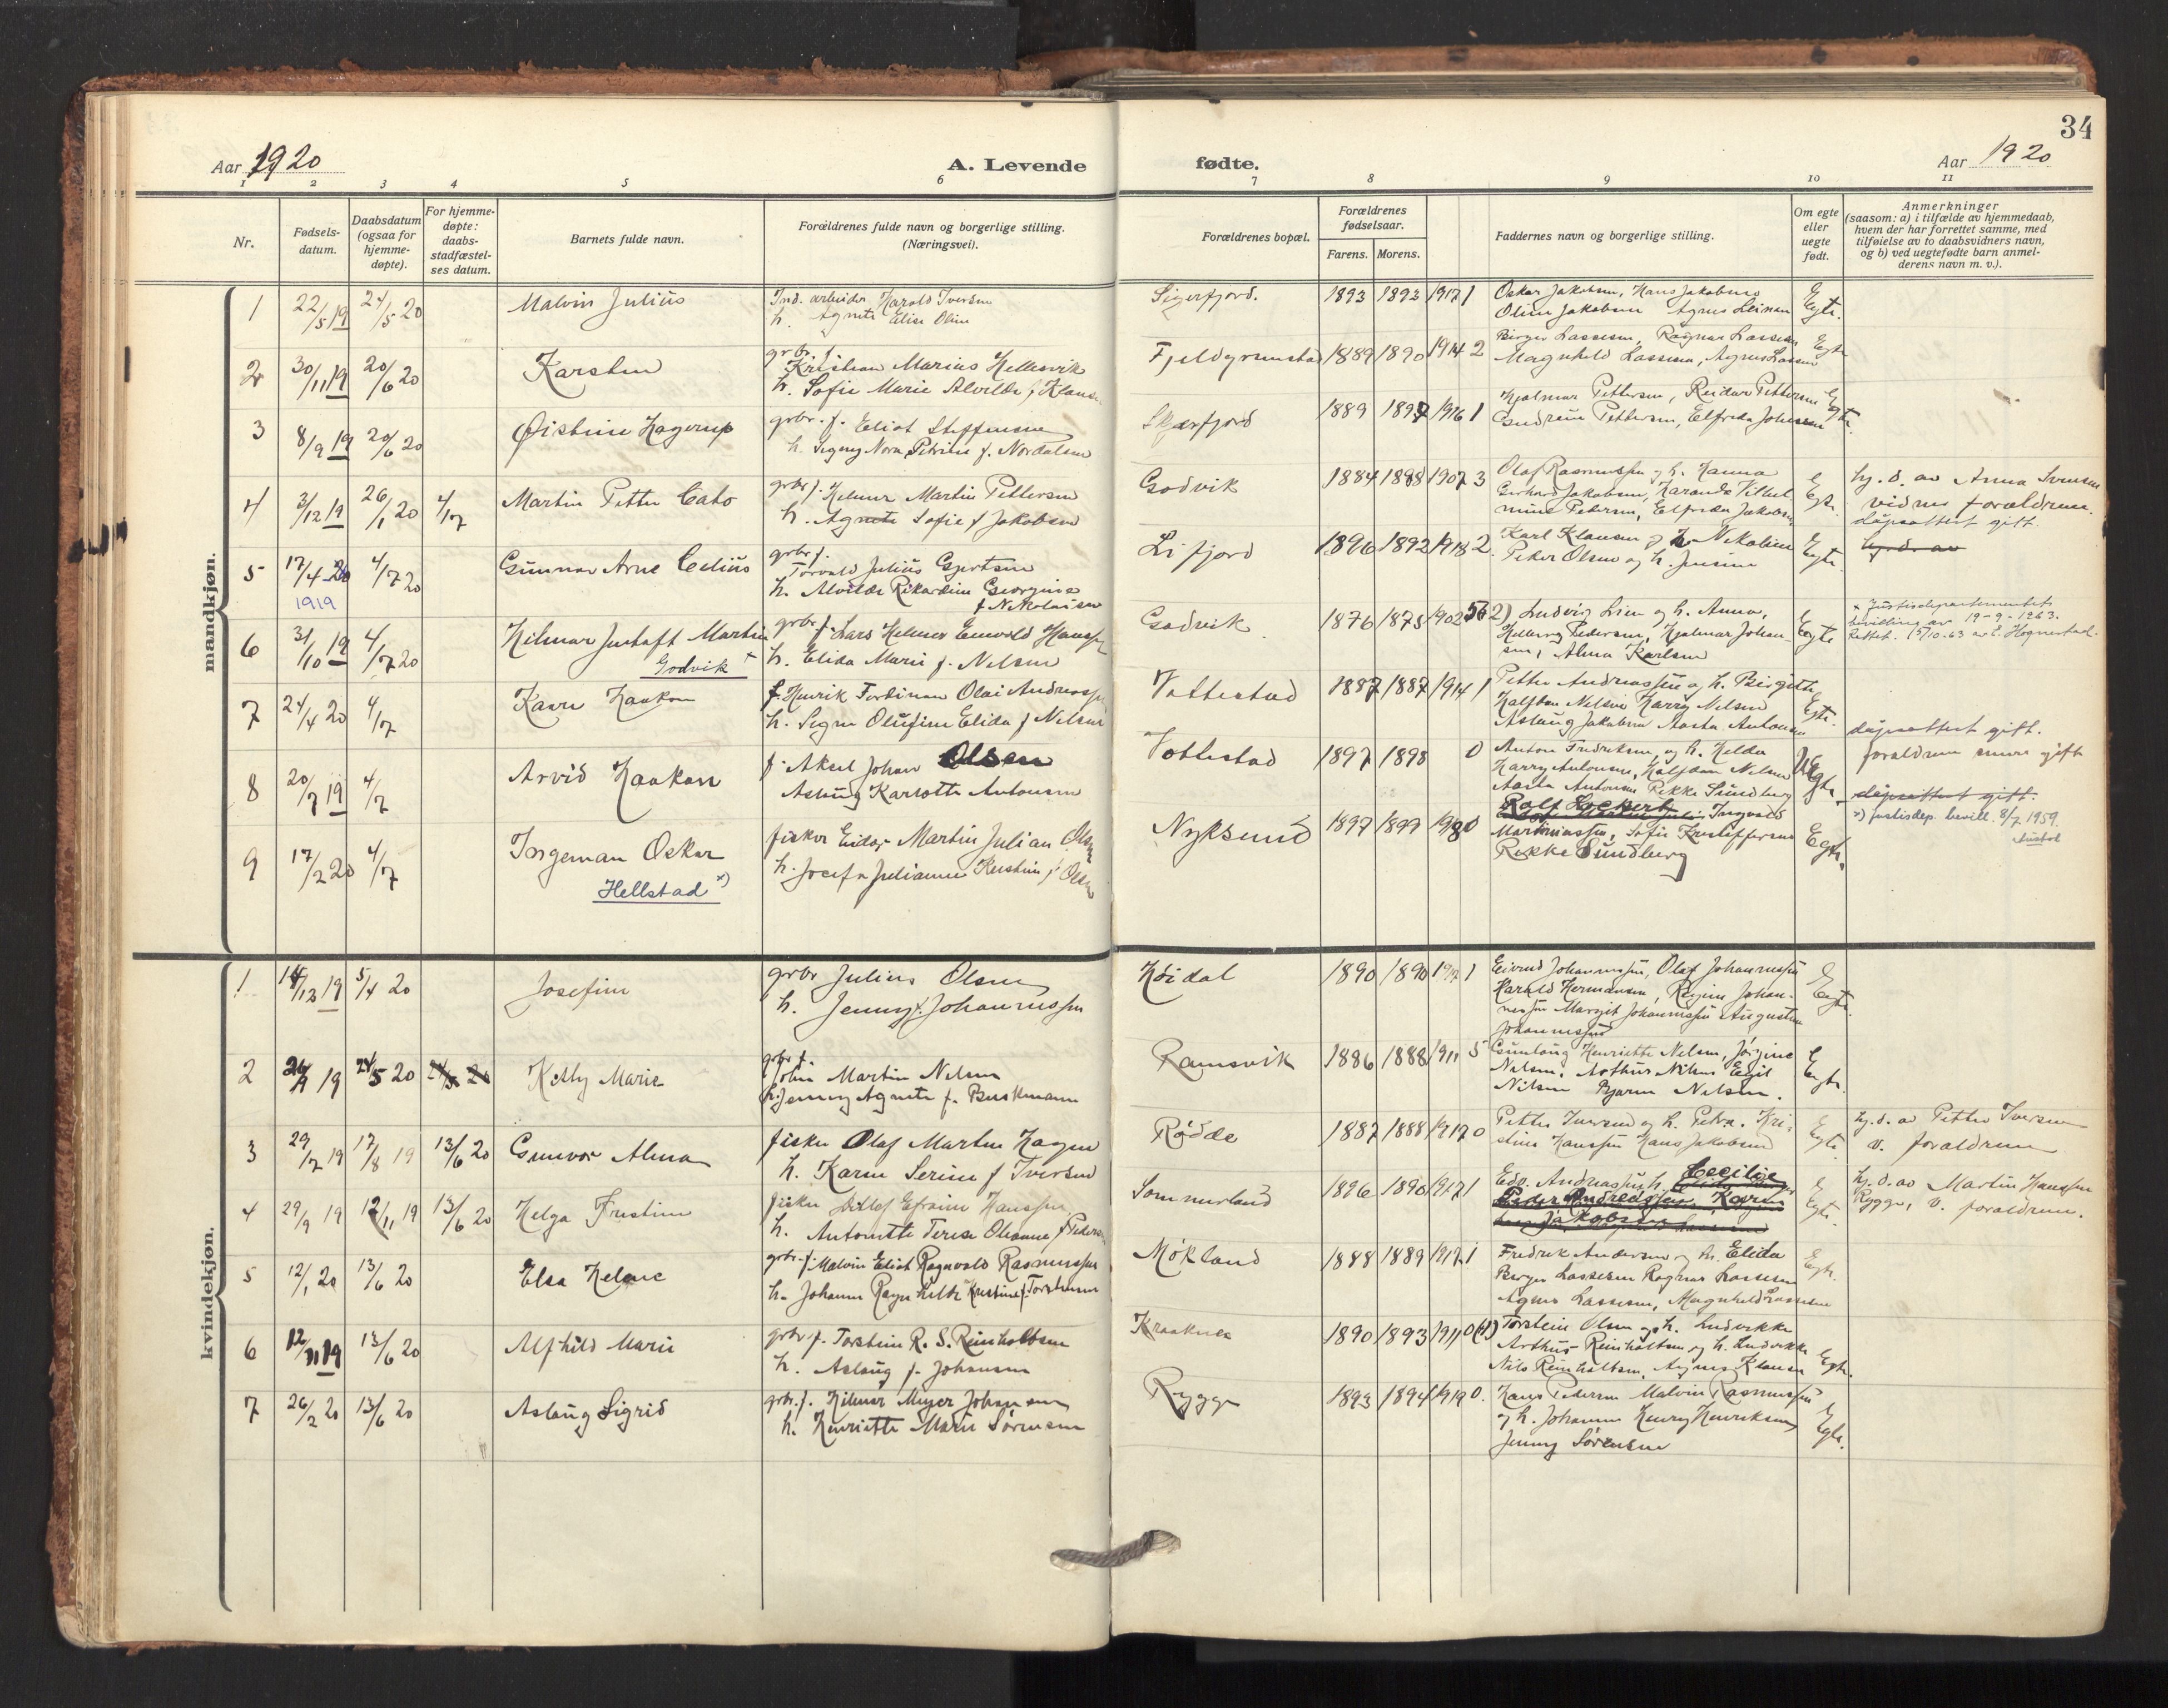 34
Aar 1920
A. Levende
fødte.
Aar 1920
1 2 3 4 5 6 7 8 9 10 11
Nr.
Fødsels-
datum.
Daabsdatum
(ogsaa for
hjemme-
døpte).
For hjemme-
døpte:
daabs-
stadfæstel-
ses datum.
Barnets fulde navn.
Forældrenes fulde navn og borgerlige stilling.
(Næringsvei).
Forældrenes bopæl.
Forældrenes
fødselsaar.
Farens. Morens.
Faddernes navn og borgerlige stilling.
Om egte
eller
uegte
født.
Anmerkninger
(saasom: a) i tilfælde av hjemmedaab,
hvem der har forrettet samme, med
tilføielse av to daabsvidners navn,
og b) ved uegtefødte barn anmel-
derens navn m. v.).
mandkjøn.
1 22/5 19 24/5 20 Malvin Julius
Ind. arbeider Harald Iversen
h. Agnete Elise Oline
Sigerfjord. 1893 1893 1917 1
Oskar Jakobsen, Hans Jakobsen
Oline Jakobsen Agnes
Egte.
2 30/11 19 20/6 20 Karsten
grbr. f.
Kristian Marius Hellesvik
h. Sofie Marie Alvilde f. Klaus
Fjeldgrunstad 1889 1890 1914 2
Birger Lassesen, Ragnar Lassesen
Magnhild Lassesen, Agnes Lassesen
Egte
3 8/9 19 20/6 20 Øistein Hagerup
grbr. f. Eliot Steffensen
h. Signy Nora Petrine f. Nordalsen
Skjærfjord 1889 1897 1916 1
Hjalmar Pettersen, Reidar Pettersen
Gudrun Pettersen, Elfrida Johansen
Egte.
4 3/12 19 26/1 20 4/7 Martin Petter Cato
grbr. f. Helmer Martin Pettersen
h. Agnete Sofie f Jakobsen
Godvik 1884 1888 1907 3
Olaf Rasmussen og h. Hanna
Gerhard Jakobsen, Haranda Vilhel
mine Pedersen, Elfrida Jakobsen
Egte.
hj. d. av Anna Iversen
vidner forældrene.
dåpsattest gitt.
5 17/4 20 4/7 20 Gunnar Arne Celius
grbr f.
Torvald Julius Gjertsen
h. Alvilde Rikardine Georgine
f Nikolaisen
Lifjord 1896 1892 1918 2.
Karl Klausen og h. Nikoline
Peker Olsen og h. Jensine
Egte.
hj. d. av
1919
6 31/10 19 4/7 20 Hilmar Justaft Martin
Godvik +
grbr f. Lars Helmer Enevold Hanssen
h. Elida Marie f. Nelsen
Godvik 1876 1878 1902
Ludvig Lien og h. Anna,
Hellberg Pedersen, Hjalmar Johan-
sen, Alma Karlsen
Egte
+ Justisdepartementets
bevilling av 19-9-1963.
Rettet. 15/10-63 av E. Hognestad.
7 24/4 20 4/7 Kaare Haakon
f. Henrik Ferdinan Olai Andreassen
h. Signe Olufine Elida f Nilsen
Vottestad 1887 1887 1914 1
Petter Andreassen og h. Birgithe
Halfdan Nelson Harry Nelsen
Aslaug Jakobsen Aasta Antonsen
Egte.
dåpsattest gitt.
8 20/7 19 4/7 Arvid Haakon
f. Aksel Johan Olsen
Aslaug Karlotte Antonsen
Vottestad 1897 1898 0
Anton Fredriksen og h. Helda
Harry Antonsen, Halfdan Nelsen
Aasta Antonsen Rikke Sundberg
UEgte
forældrene senere gift
dåpsattest gitt.
9 17/2 20 4/7 Ingeman Oskar
Hellstad x)
fisker Eidar Martin Julian Olsen
h. Josefa Julianne Kirstine f Olsen
Nyksund 1897 1899 1918 0
Rolf Lockert Ingvald
Martinussen, Sofie Kristoffersen
Rikke Sundberg
Egte.
x) Justisdep. bevill. 8/7 1959.
kvindekjøn.
1 14/12 19 5/4 20 Josefine
grbr Julius Olsen
h. Jenny f. Johannessen
Høidal 1890 1890 1917 1
Eivind Johannessen, Olaf Johannessen
Harald Hermansen, Regine Johan-
nessen Margit Johannessen Augusta
Johannessen
Egte.
2 26/9 19 24/5 20 24/5 20 Ketty Marie
grbr f.
John Martin Nelsen
h. Jenny Agnete f. Buskmann
Ramsvik 1886 1888 1911 5
Gunlaug Henriette Nelsen, Jørgine
Nelsen, Arthur Nilsen Egil
Nilsen Bjarne Nelsen.
Egte.
3 29/7 19 17/8 19 13/6 20 Gunvor Alma
fisker Olaf Martin Hagen
h. Karen Serine f Iversen
Rødde 1887 1888 1917 0
Petter Iversen og h. Petra. Kri-
stine Hanssen Hans Jakobsen
Egte.
hj. d. av Petter Iversen
v. forældrene
4 29/9 19 12/11 19 13/6 20 Helga Justine
fisker Detlef Efraim Hanssen
h. Antonette Terese Oleanna f Pedersen
Sommerland 1896 1896 1917 1
Edv. Andreassen h. Cecilie
Peder Andreassen, Karen
Jakobsen
Egte.
hj. d. av Martin Hanssen
Rygge, v. forældrene.
5 12/1 20 13/6 20 Elsa Helene
grbr. f. Malvin Eliot Ragnvald Rasmussen
h. Johanna Ragnhilde Kristine f. Torstensen
Møkland 1888 1889 1917 1
Fredrik Andersen og h. Elida
Birger Lassesen Ragnar Lassesen
Agnes Lassesen, Magnhild Lassesen
Egte.
6 12/11 19 13/6 20 Alfhild Marie
grbr f. Torstein R. S. Reinholtsen
h. Aslaug f. Johansen
Kraaknes 1890 1893 1911 0 (1)
Torstein Olsen og h. Ludvikke
Arthur Reinholtsen og h. Ludvikke
Nils Reinholtsen, Agnes Klausen
Egte.
7 26/2 20 13/6 20 Aslaug Sigrid
grbr. f. Hilmar Meyer Johansen
h. Henriette Marie Sørensen
Rygge 1893 1894 1919 0.
Hans Pedersen Malvin Rasmussen
og h. Johanna Henry Henriksen,
Jenny Sørensen
Egte.